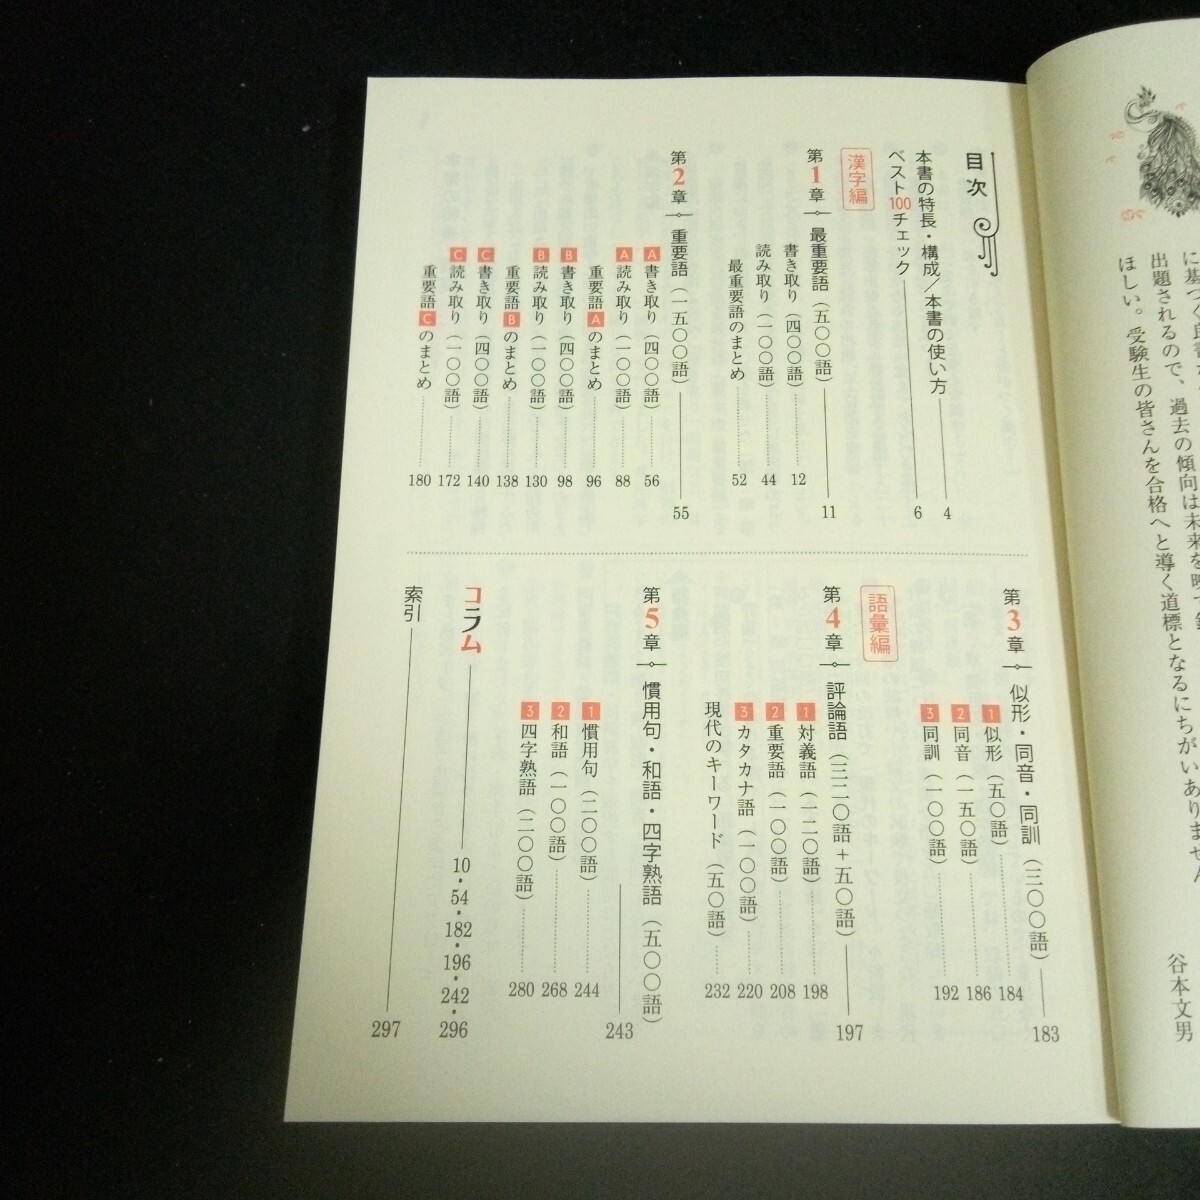 に基づく良書
出題されるので、過去の傾向は未来を映す
ほしい。受験生の皆さんを合格へと導く道標となるにちがいありません
谷本文男
目次
本書の特長・構成／本書の使い方 4
ベスト100チェック 6
漢字編
第1章 最重要語（五〇〇語） 11
書き取り（四〇〇語） 12
読み取り（一〇〇語） 44
最重要語のまとめ 52
第2章 重要語（一五〇〇語） 55
A 書き取り（四〇〇語） 56
A 読み取り（一〇〇語） 88
重要語Aのまとめ 96
B 書き取り（四〇〇語） 98
B 読み取り（一〇〇語） 130
重要語Bのまとめ 138
C 書き取り（四〇〇語） 140
C 読み取り（一〇〇語） 172
重要語Cのまとめ 180
第3章 似形・同音・同訓（三〇〇語） 183
1 似形（五〇語） 184
2 同音（一五〇語） 186
3 同訓（一〇〇語） 192
語彙編
第4章 評論語（三二〇語＋五〇語） 197
1 対義語（一二〇語） 198
2 重要語（一〇〇語） 208
3 カタカナ語（一〇〇語） 220
現代のキーワード（五〇語） 232
第5章 慣用句・和語・四字熟語（五〇〇語） 243
1 慣用句（二〇〇語） 244
2 和語（一〇〇語） 268
3 四字熟語（二〇〇語） 280
コラム 10・54・182・196・242・296
索引 297